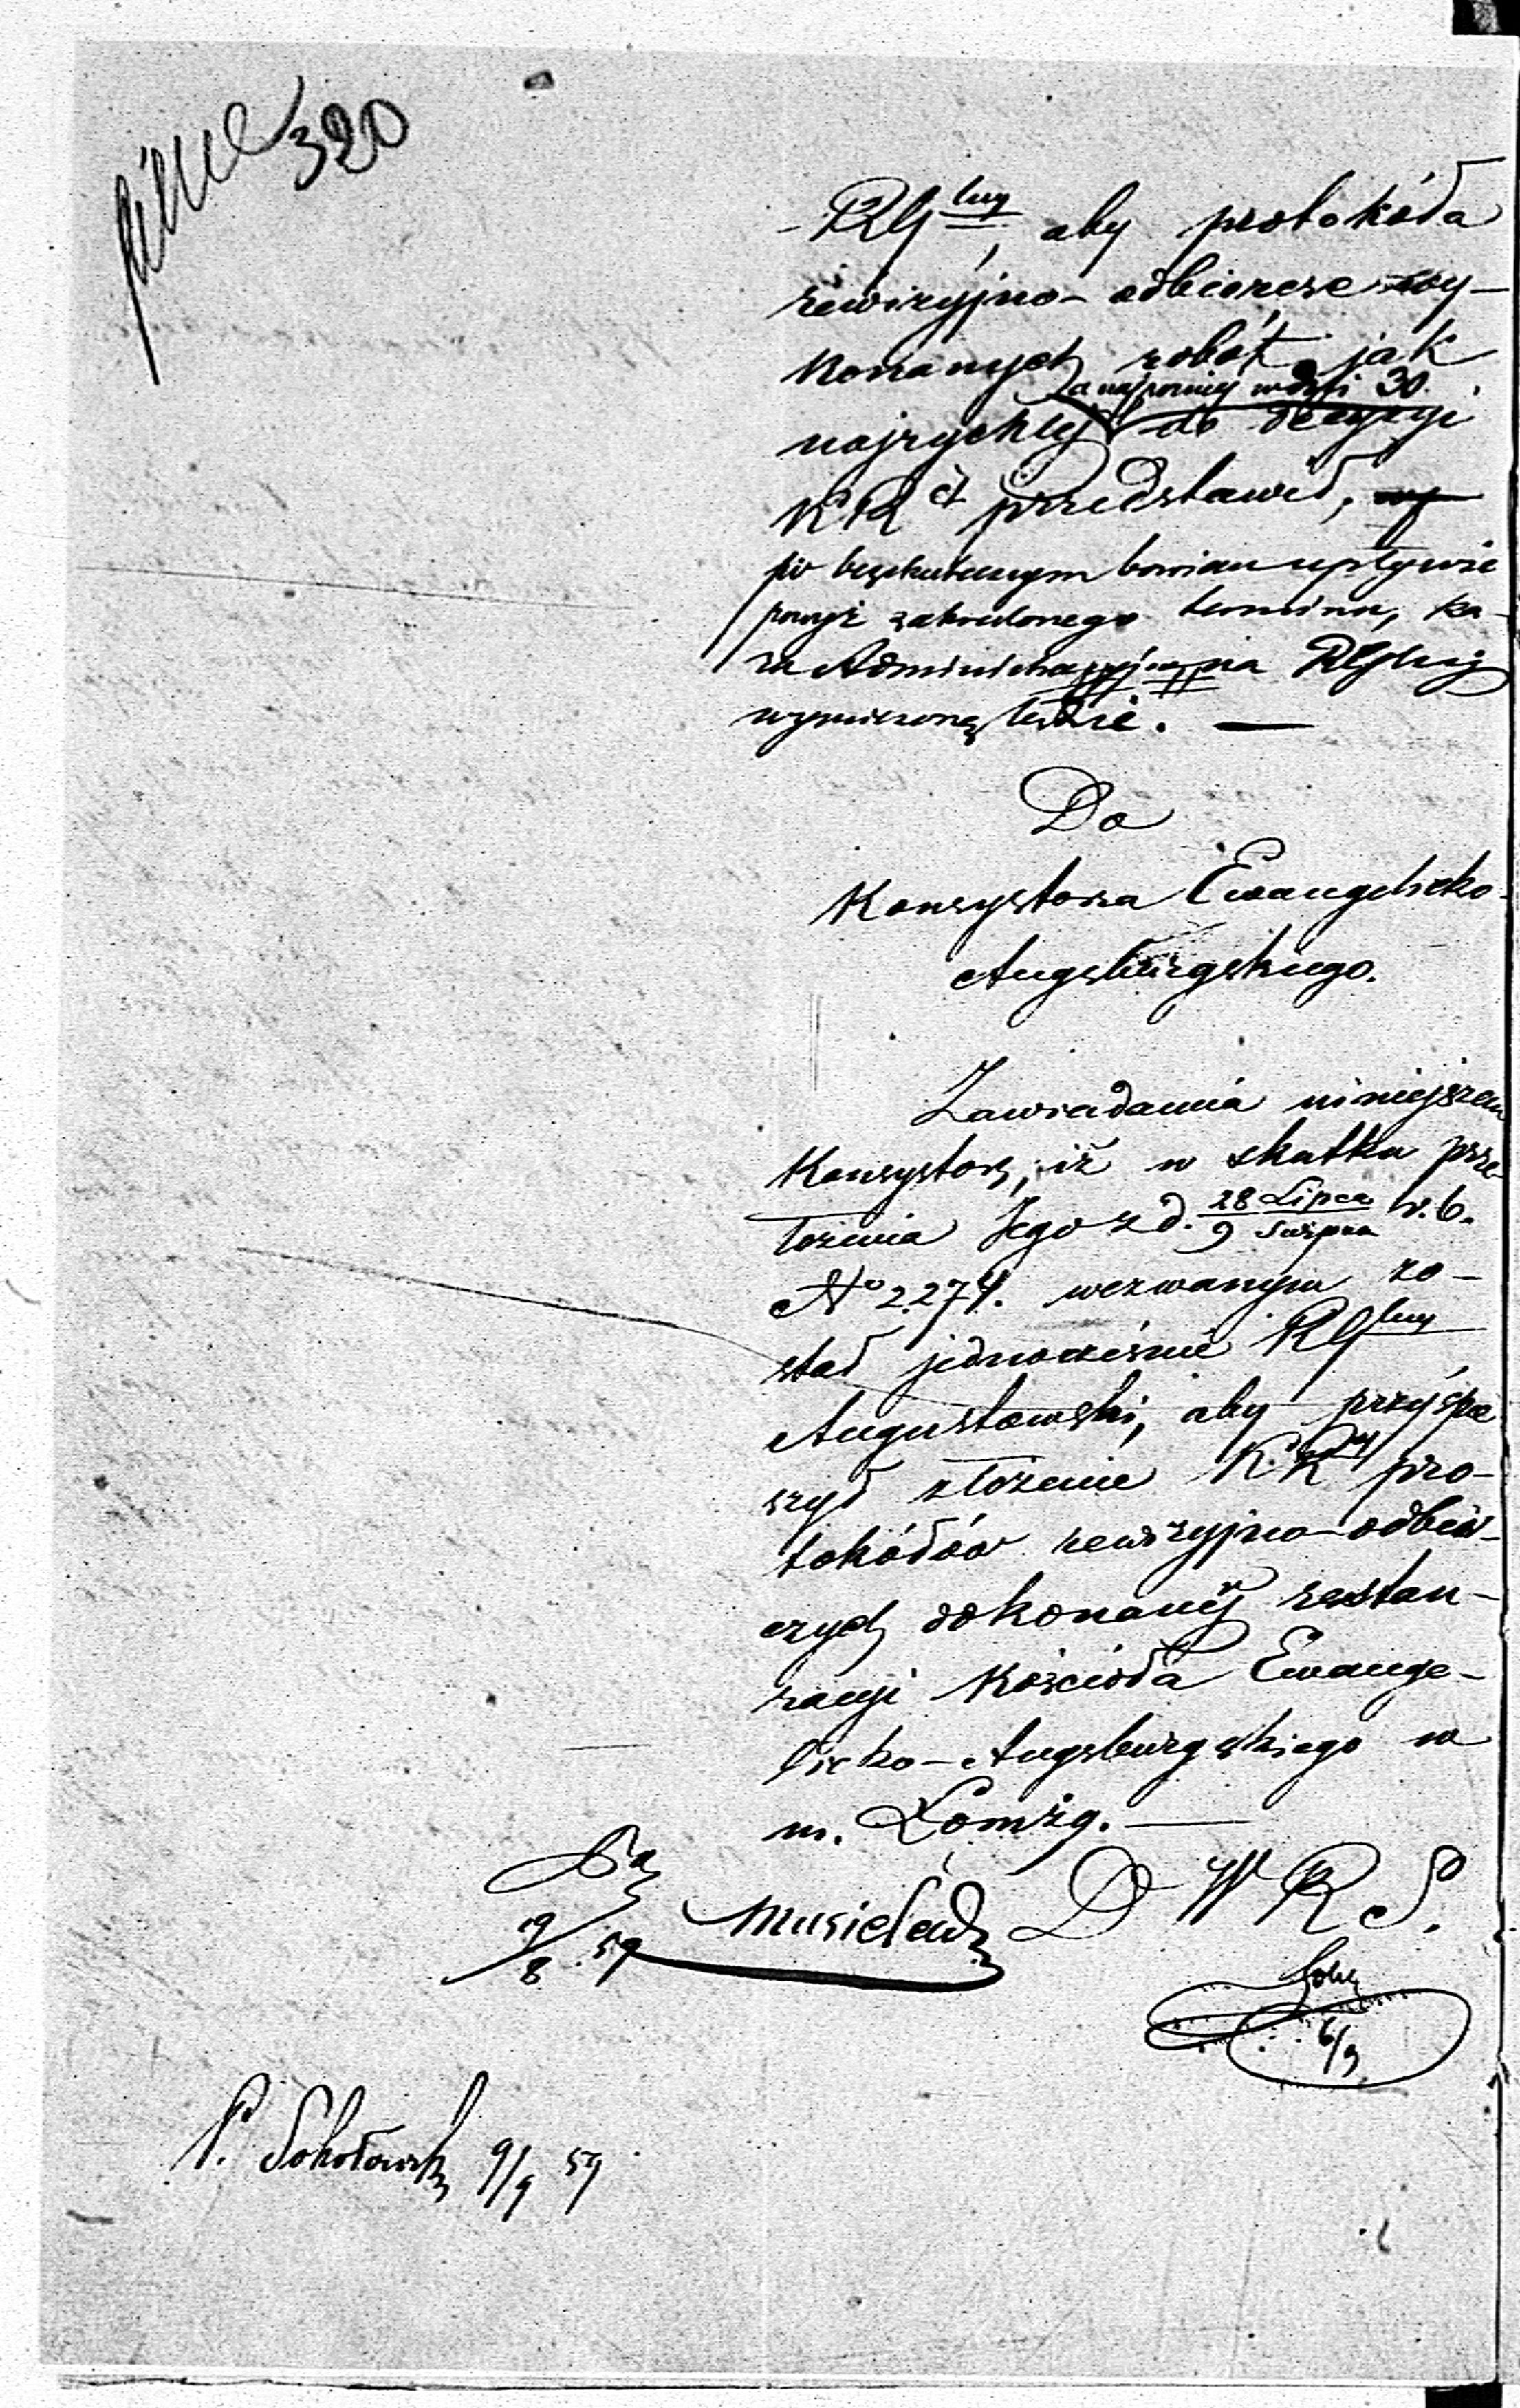 pilne 320
RG<sup>lny</sup>, aby protokóła
rewizyjno-odbiorcze wy-
konanych robót jak
a najpóźniej w dni 30.
najrychlej do decyzyi
KR<sup>ej</sup> przedstawił,
po bezskutecznym bowiem upływie
powyż zakreślonego terminu, ka-
ra Administracyjna na RGlnego
wymierzoną będzie. —
Do
Konsystorza Ewangelicko-
Augsburgskiego.
Zawiadamia niniejszem
Konsystorz, iż w skutku prze-
łożenia Jego z d. 28 Lipca / 9 Sierpnia r. b.
N° 2274. wezwanym zo-
stał jednocześnie RG<sup>lny</sup>
Augustowski, aby przyśpie
szył złożenie KR<sup>ej</sup> pro-
tokółów rewizyjno-odbior-
czych dokonanej restau-
racyi Kościoła Ewange-
licko-Augsburgskiego w
m. Łomży. —
D W R S.
19/8 59 Musielewicz
6/9
P. Sokołowski 9/9 59